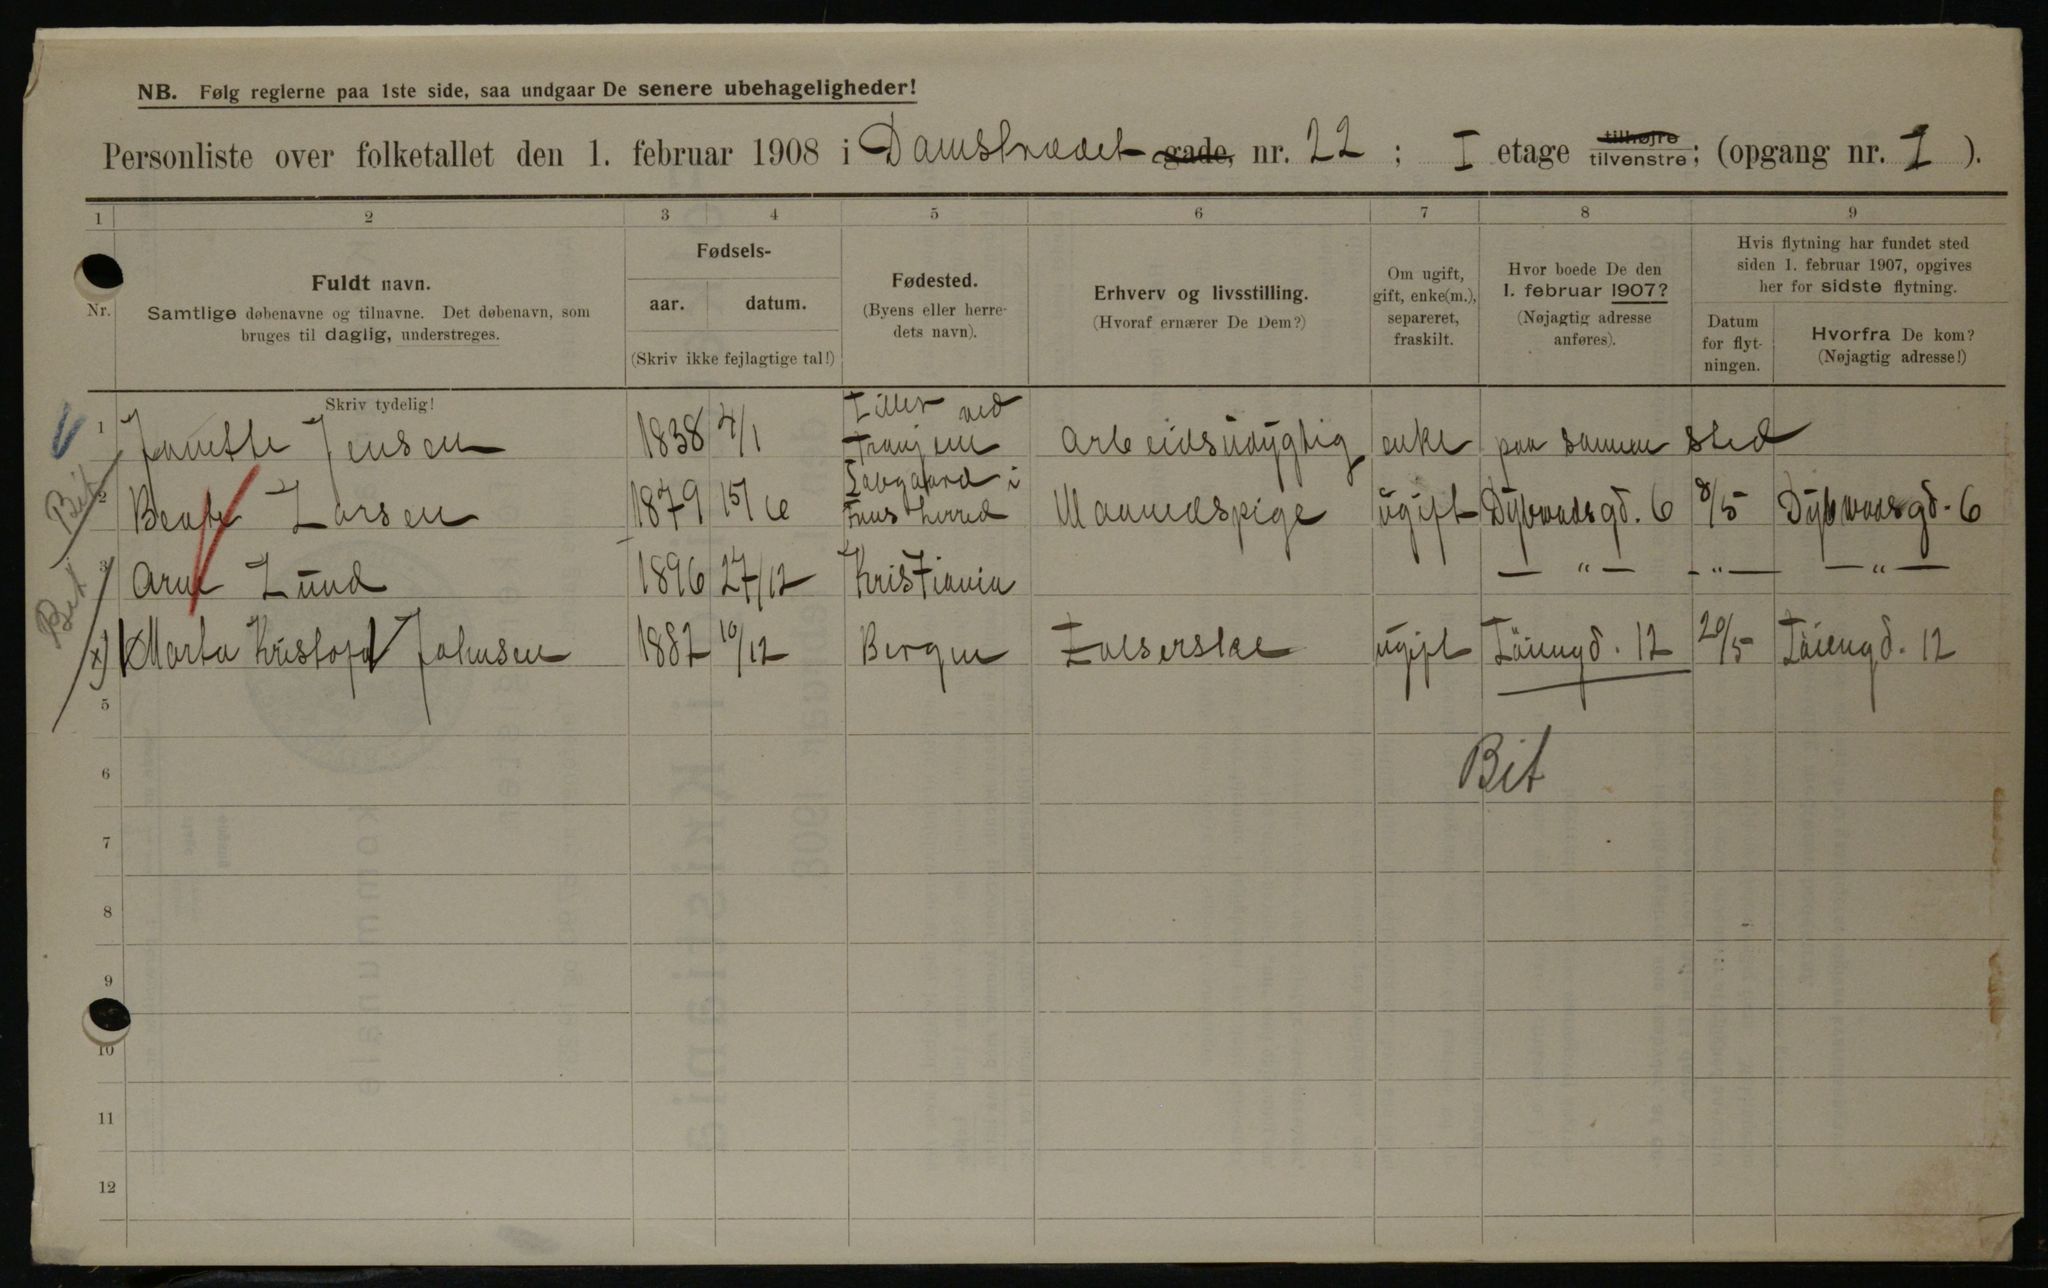 NB. Følg reglerne paa 1ste side, saa undgaar De senere ubehageligheder!
Personliste over folketallet den 1. februar 1908 i Damstrædet gade, nr. 22 ; I etage tilhøjre tilvenstre; (opgang nr. I ).
1 2 3 4 5 6 7 8 9
Nr.
Fuldt navn.
Samtlige døbenavne og tilnavne. Det døbenavn, som
bruges til daglig, understreges.
Fødsels-
aar. datum.
(Skriv ikke fejlagtige tal!)
Fødested.
(Byens eller herre-
dets navn).
Erhverv og livsstilling.
(Hvoraf ernærer De Dem?)
Om ugift,
gift, enke(m.),
separeret,
fraskilt.
Hvor boede De den
1. februar 1907?
(Nøjagtig adresse
anføres).
Hvis flytning har fundet sted
siden 1. februar 1907, opgives
her for sidste flytning.
Datum
for flyt-
ningen.
Hvorfra De kom?
(Nøjagtig adresse!)
Skriv tydelig!
1 Janette Jensen 1838 4/1 Tiller ved Tronjem Arbeidsudygtig enke paa samme sted
Bit
2 Beate Larsen 1879 15/6 i herred Maanedspige ugift Dybwadsgd. 6 8/5 Dybwadsgd. 6
Bit
3 Arne Lund 1896 27/12 Kristiania — " — — " — — " —
x) Marta Kristofa Johnsen 1882 10/12 Bergen Falserske ugift Töiengd. 12 20/5 Töiengd. 12
5
6 Bit
7
8
9
10
11
12